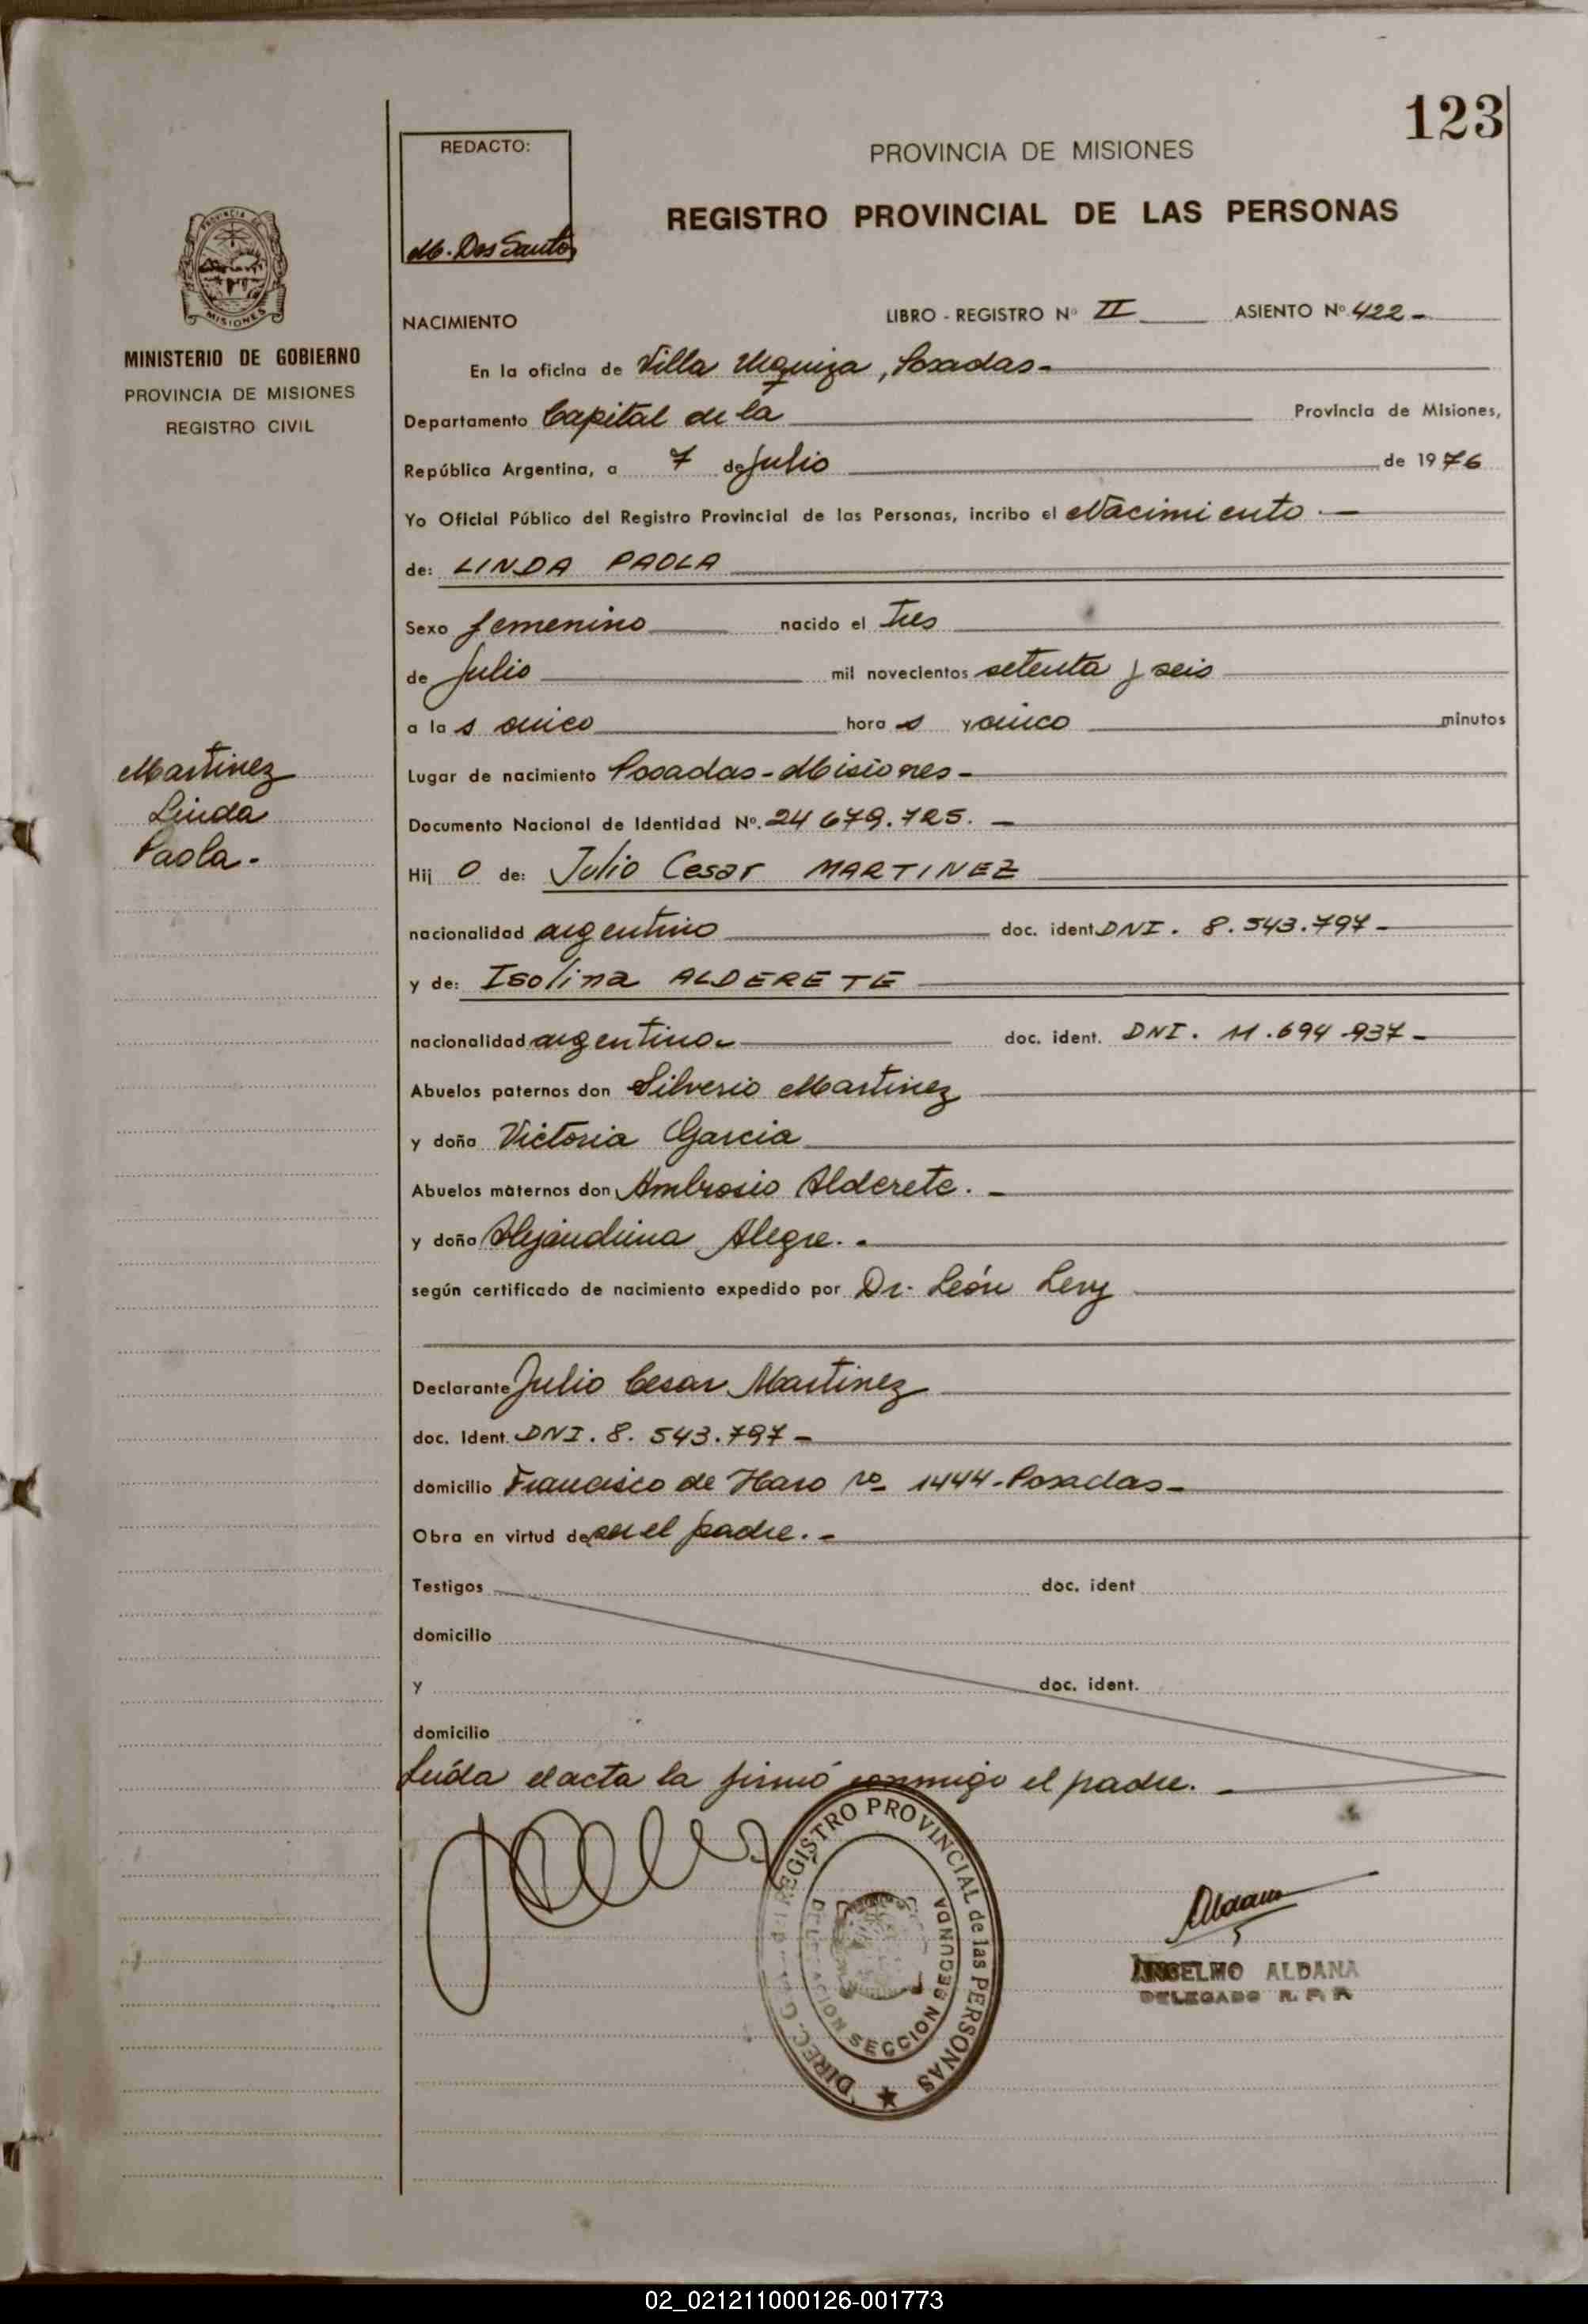 123
REDACTO:
M. Dos Santos
PROVINCIA DE MISIONES
REGISTRO PROVINCIAL DE LAS PERSONAS
PROVINCIA DE
MISIONES
MINISTERIO DE GOBIERNO
PROVINCIA DE MISIONES
REGISTRO CIVIL
NACIMIENTO LIBRO - REGISTRO Nº II ASIENTO Nº 422-
En la oficina de Villa Urquiza, Posadas-
Departamento Capital de la Provincia de Misiones,
República Argentina, a 7 de Julio de 1976
Yo Oficial Público del Registro Provincial de las Personas, incribo el Nacimiento.-
de: LINDA PAOLA
Sexo femenino nacido el Tres
de Julio mil novecientos setenta y seis
a las cinco horas y cinco minutos
Martinez
Linda
Paola.
Lugar de nacimiento Posadas-Misiones-
Documento Nacional de Identidad Nº. 24 679.725.-
Hij o de: Julio Cesar MARTINEZ
nacionalidad argentino doc. ident DNI. 8.543.797-
y de: Isolina ALDERETE
nacionalidad argentina doc. ident. DNI. 11.694.937-
Abuelos paternos don Silverio Martinez
y doña Victoria Garcia
Abuelos maternos don Ambrosio Alderete.-
y doña Alejandrina Alegre.-
según certificado de nacimiento expedido por Dr. León Levy
Declarante Julio Cesar Martinez
doc. Ident. DNI. 8.543.797-
domicilio Francisco de Haro nº 1444-Posadas-
Obra en virtud de ser el padre.-
Testigos doc. ident
domicilio
y doc. ident.
domicilio
Leída el acta la firmó conmigo el padre.-
DIREC. G REGISTRO PROVINCIAL de las PERSONAS
DELEGACION SECCION SEGUNDA
Aldana
ANSELMO ALDANA
DELEGADO R. P. P.
02_021211000126-001773